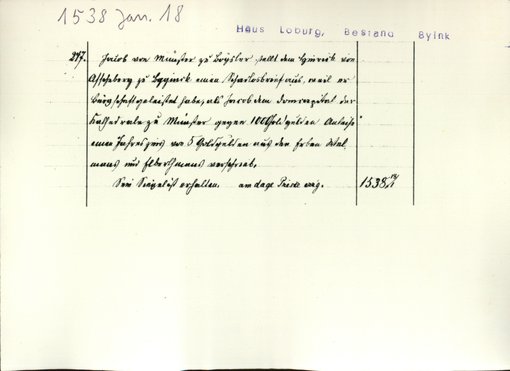 1538 Jan. 18
Haus Loburg, Bestand Byink
217. Jacob von Münster zu Boyslar stellt dem Heinrich von
Asscheberg zu Byginck einen Schadlosbrief aus, weil er
Bürgschaft geleistet habe, als Jacob dem Domcapitel der
Kathedrale zu Münster gegen 100 Goldgulden Anleihe
eine Jahresgins von 5 Goldgulden aus den Erben Wel-
manns und Elberhmans verschrieb.
Sein Siegel ist erhalten. am dage Prisce virg.
1538 18/1